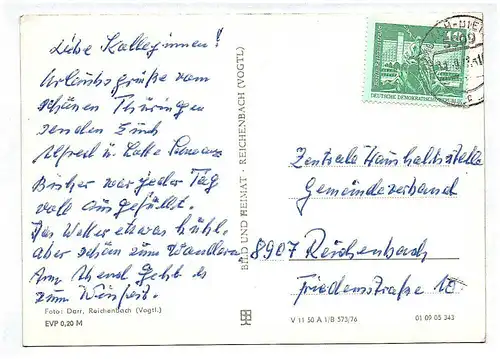 Liebe Kolleginnen!
Urlaubsgrüße vom
schönen Thüringen
senden Euch
Alfred u. Lotte
Bisher war jeder Tag
voll ausgefüllt.
Das Wetter etwas kühl,
aber schön zum Wandern
Am Abend geht es
zum Weinfest.
Foto: Darr, Reichenbach (Vogtl.)
EVP 0,20 M
BILD UND HEIMAT · REICHENBACH (VOGTL)
DEUTSCHE DEMOKRATISCHE
Zentrale Haushaltsstelle
Gemeindeverband
8907 Reichenbach
Friedensstraße 10.
V 11 50 A 1/B 573/76
01 09 05 343